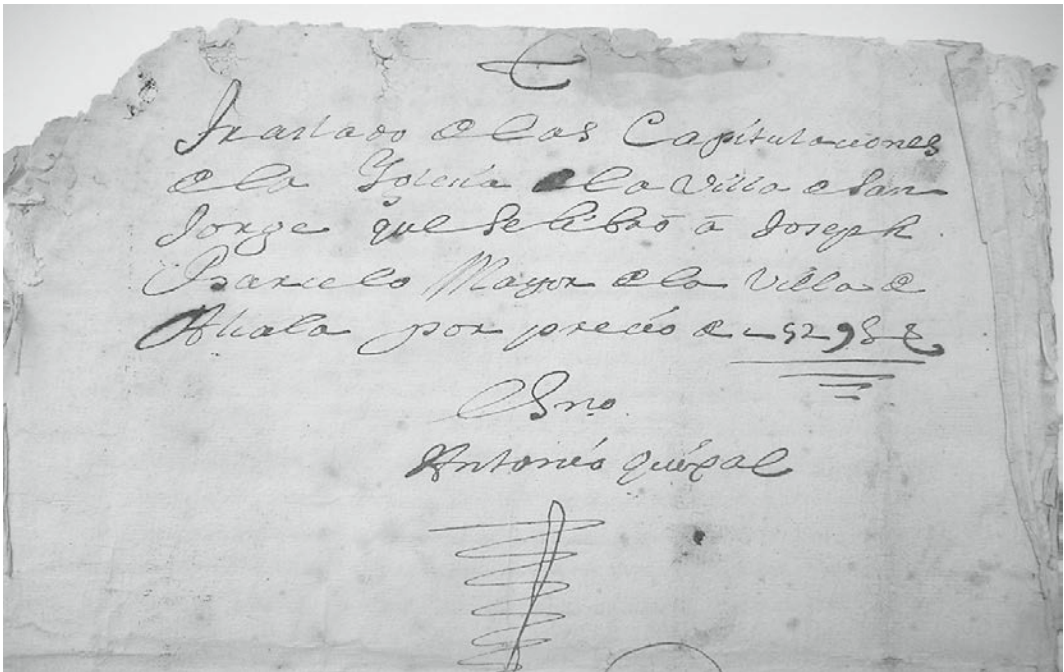 Traslado de las Capitulaciones
de la Yglecia de la Villa de San
Jorge que se libró a Joseph
Barcelo Mayor de la Villa de
Alcala por precio de
Esno
Antonio